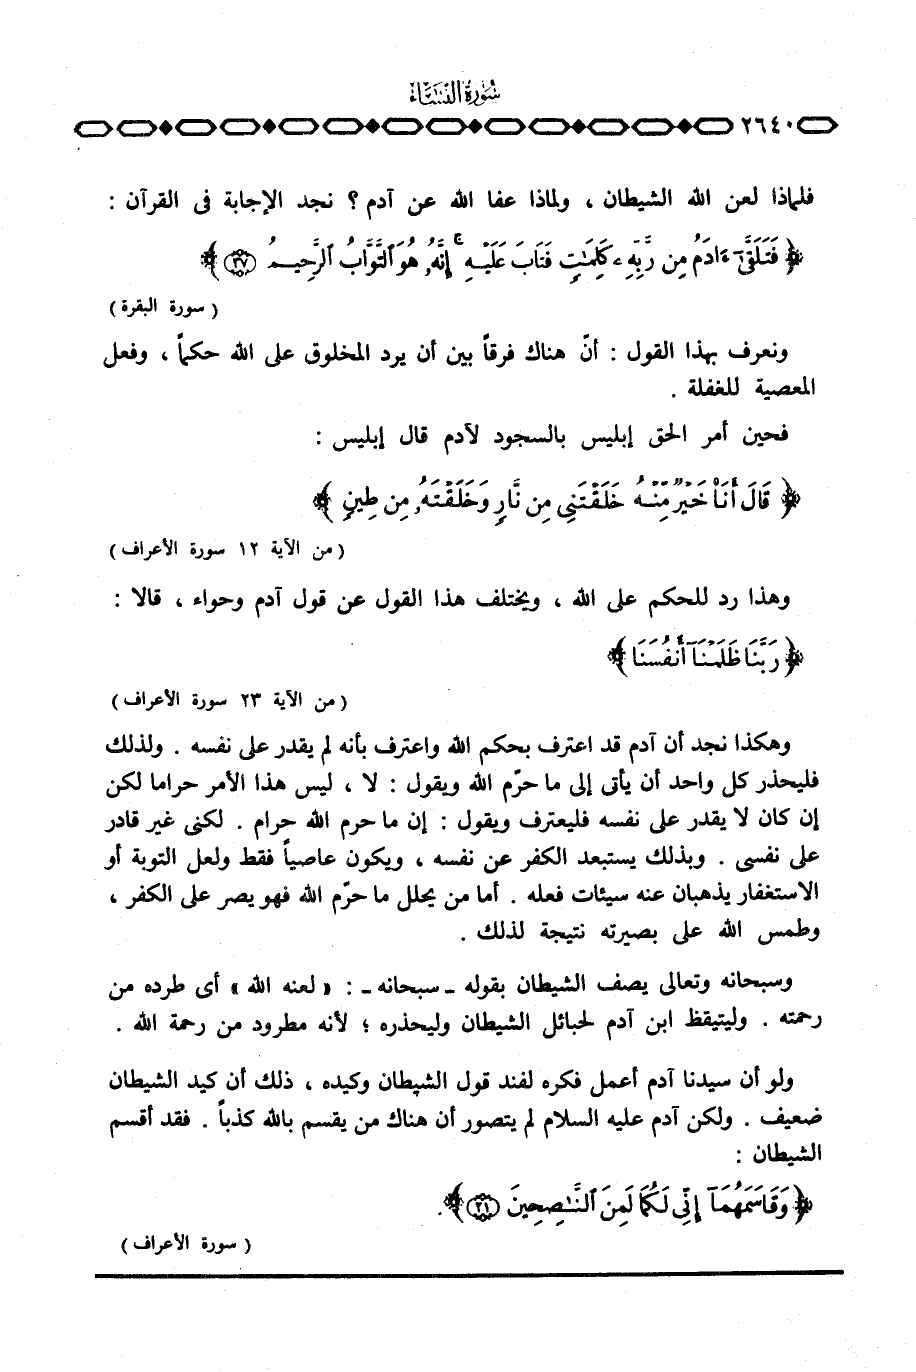 سُورَةُ النِّسَاءِ
٢٦٤٠
فلماذا لعن الله الشيطان ، ولماذا عفا الله عن آدم ؟ نجد الإجابة فى القرآن :
﴿ فَتَلَقَّىٰٓ ءَادَمُ مِن رَّبِّهِۦ كَلِمَٰتٍ فَتَابَ عَلَيْهِ ۚ إِنَّهُۥ هُوَ ٱلتَّوَّابُ ٱلرَّحِيمُ ٣٧ ﴾
( سورة البقرة )
ونعرف بهذا القول : أنّ هناك فرقاً بين أن يرد المخلوق على الله حكماً ، وفعل
المعصية للغفلة .
فحين أمر الحق إبليس بالسجود لآدم قال إبليس :
﴿ قَالَ أَنَا۠ خَيْرٌ مِّنْهُ خَلَقْتَنِى مِن نَّارٍ وَخَلَقْتَهُۥ مِن طِينٍ ﴾
( من الآية ١٢ سورة الأعراف )
وهذا رد للحكم على الله ، ويختلف هذا القول عن قول آدم وحواء ، قالا :
﴿ رَبَّنَا ظَلَمْنَآ أَنفُسَنَا ﴾
( من الآية ٢٣ سورة الأعراف )
وهكذا نجد أن آدم قد اعترف بحكم الله واعترف بأنه لم يقدر على نفسه . ولذلك
فليحذر كل واحد أن يأتى إلى ما حرّم الله ويقول : لا ، ليس هذا الأمر حراما لكن
إن كان لا يقدر على نفسه فليعترف ويقول : إن ما حرم الله حرام . لكنى غير قادر
على نفسى . وبذلك يستبعد الكفر عن نفسه ، ويكون عاصياً فقط ولعل التوبة أو
الاستغفار يذهبان عنه سيئات فعله . أما من يحلل ما حرّم الله فهو يصر على الكفر ،
وطمس الله على بصيرته نتيجة لذلك .
وسبحانه وتعالى يصف الشيطان بقوله ـ سبحانه ـ : « لعنه الله » أى طرده من
رحمته . وليتيقظ ابن آدم لحبائل الشيطان وليحذره ؛ لأنه مطرود من رحمة الله .
ولو أن سيدنا آدم أعمل فكره لفند قول الشيطان وكيده ، ذلك أن كيد الشيطان
ضعيف . ولكن آدم عليه السلام لم يتصور أن هناك من يقسم بالله كذباً . فقد أقسم
الشيطان :
﴿ وَقَاسَمَهُمَآ إِنِّى لَكُمَا لَمِنَ ٱلنَّٰصِحِينَ ٢١ ﴾ .
( سورة الأعراف )